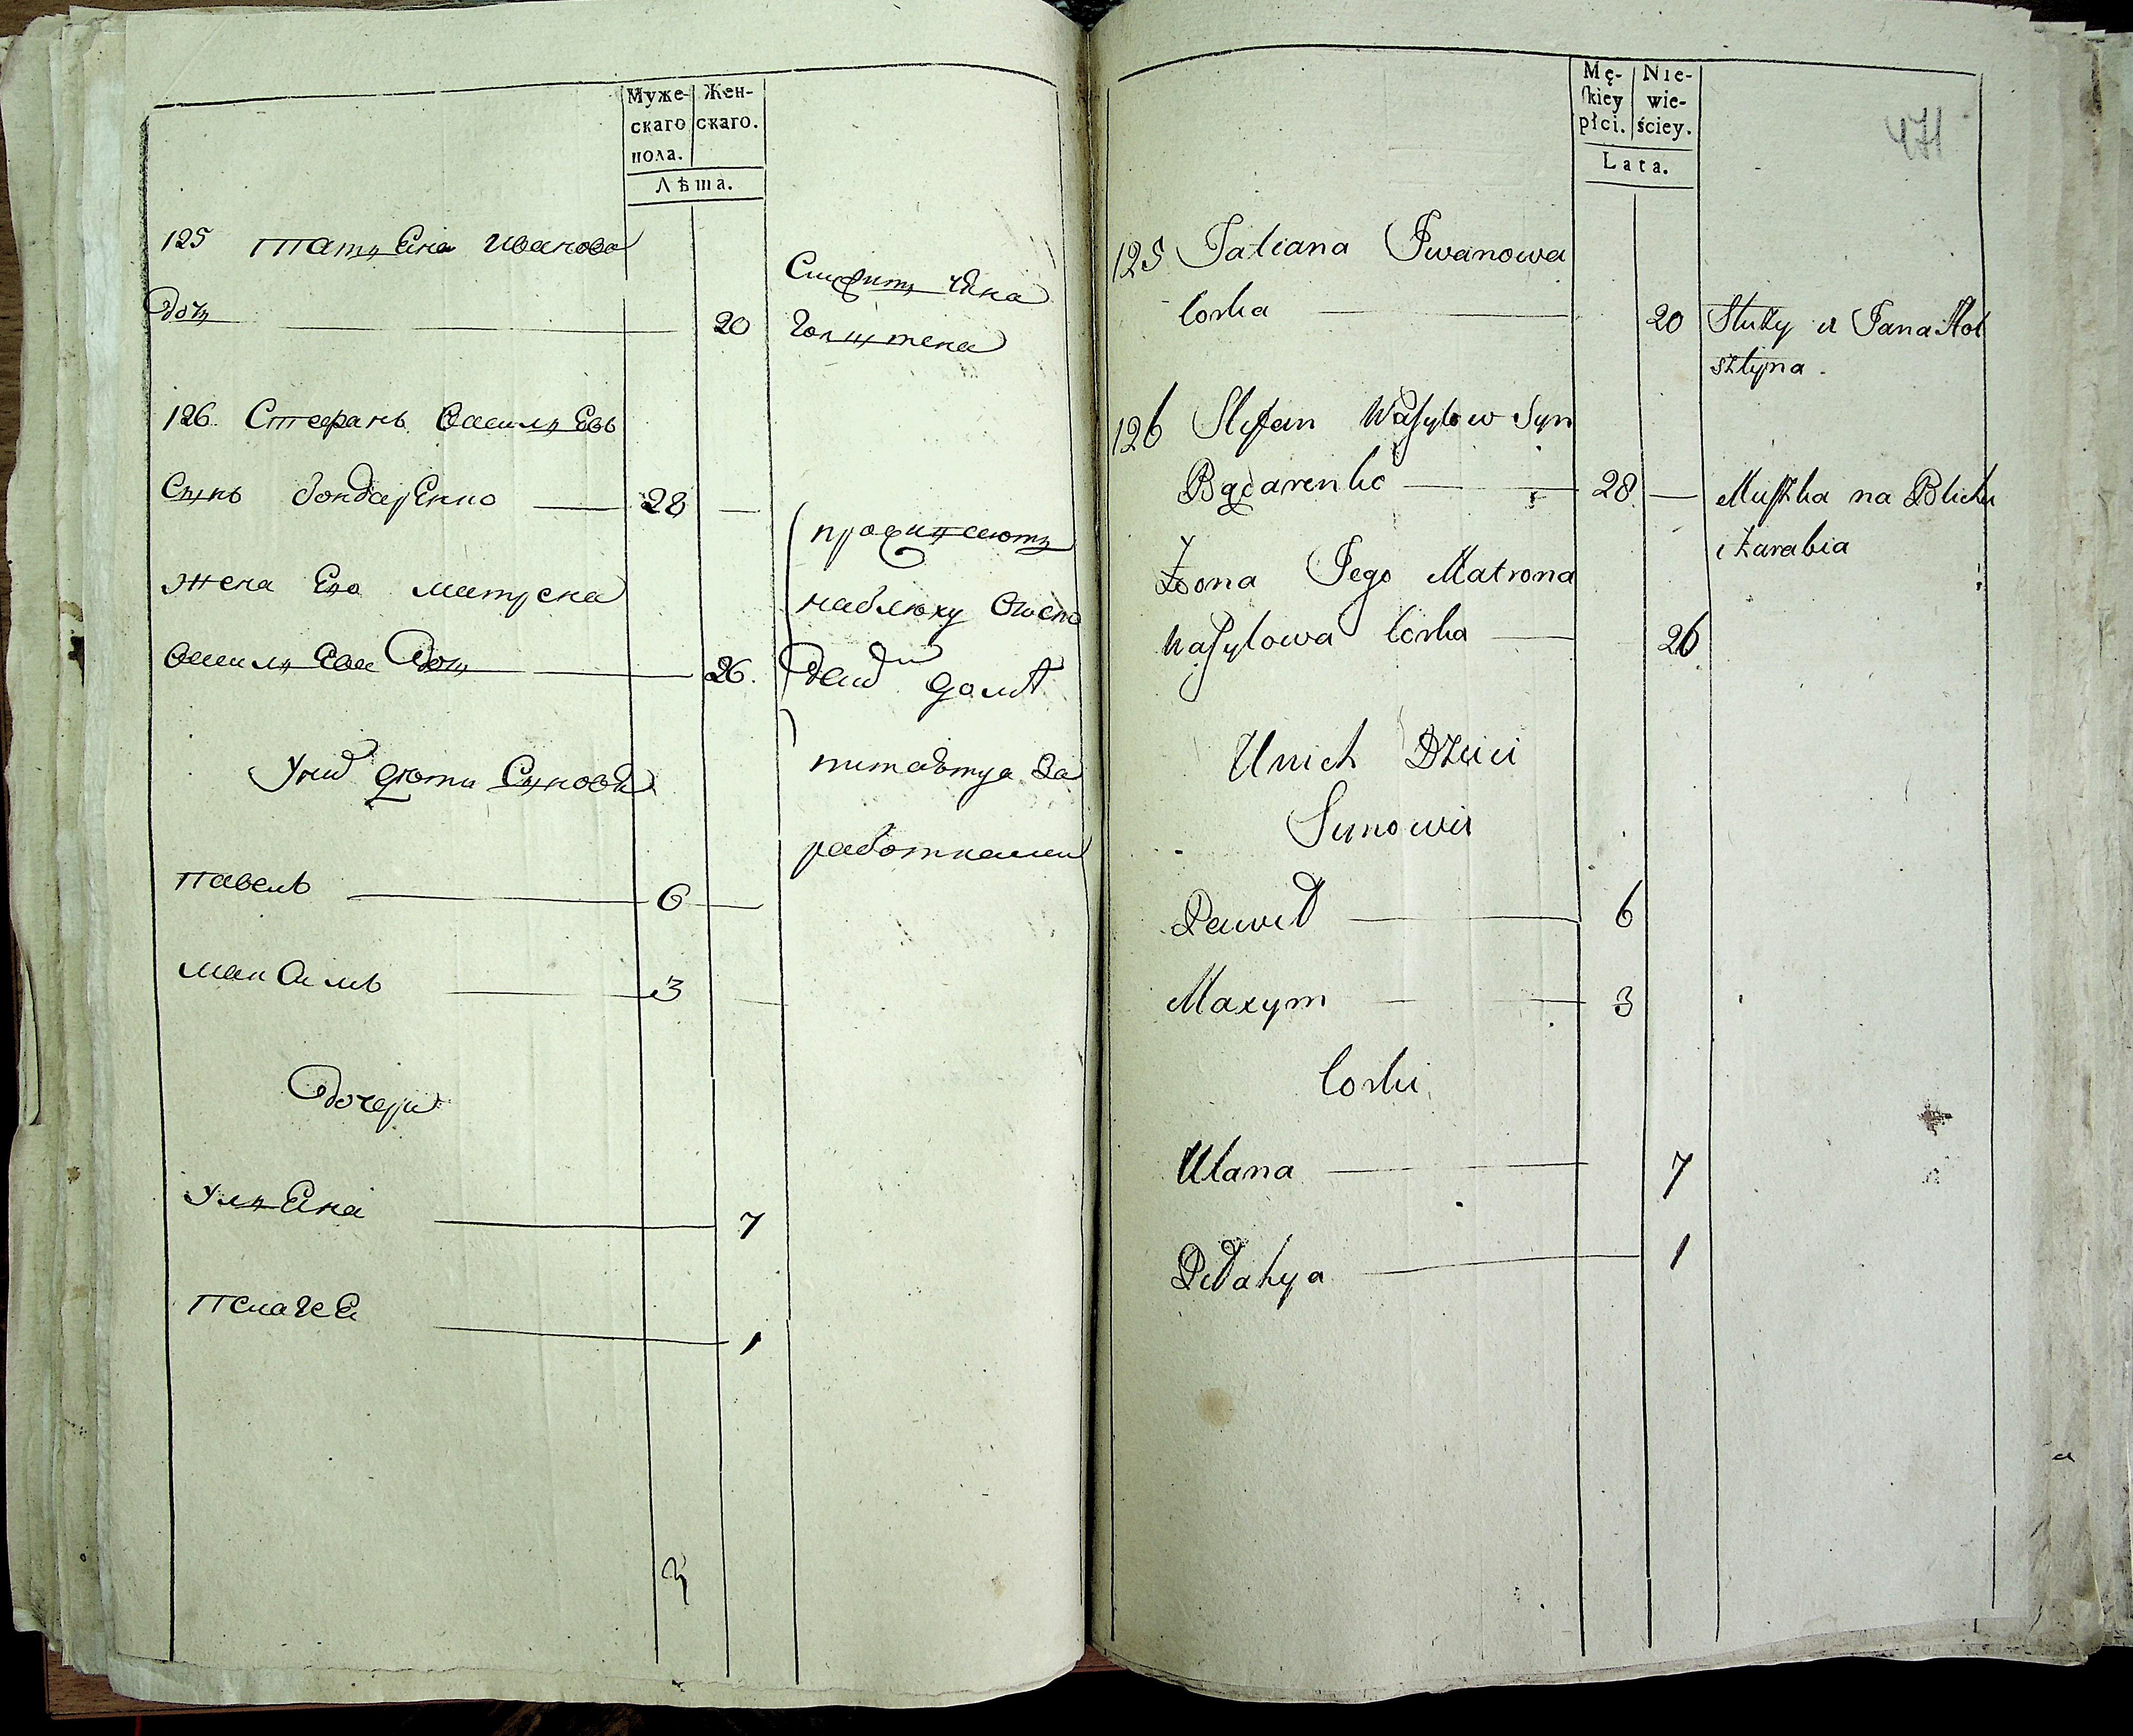 Муже-
скаго
пола.
Жен-
скаго.
Лѣта.
125 Татьяна Иванова
дочь 20
Служитъ
Голштена
126 Стефанъ Василъевъ
Сынъ бондаренко 28
жена Его матрена
Васильева дочь 26.
проживають
работками
дети Сыновя
Павелъ 6
Максимъ 3
дочери
Ульяна 7
Пелагея 1
Mę-
skiey
płci.
Nie-
wie-
ściey.
Lata.
471
125 Tatiana Iwanowa
Corka 20 Słuzy u Pana Hol
sztyna.
126 Stefan Wasylow Syn
Bądarenko 28 Muszka na Blichu
i Zarabia
Zona Jego Matrona
Wasylowa Corka 26
Unich Dzieci
Synowie
Paweł 6
Maxym 3
Corki
Ulana 7
Pelahya 1